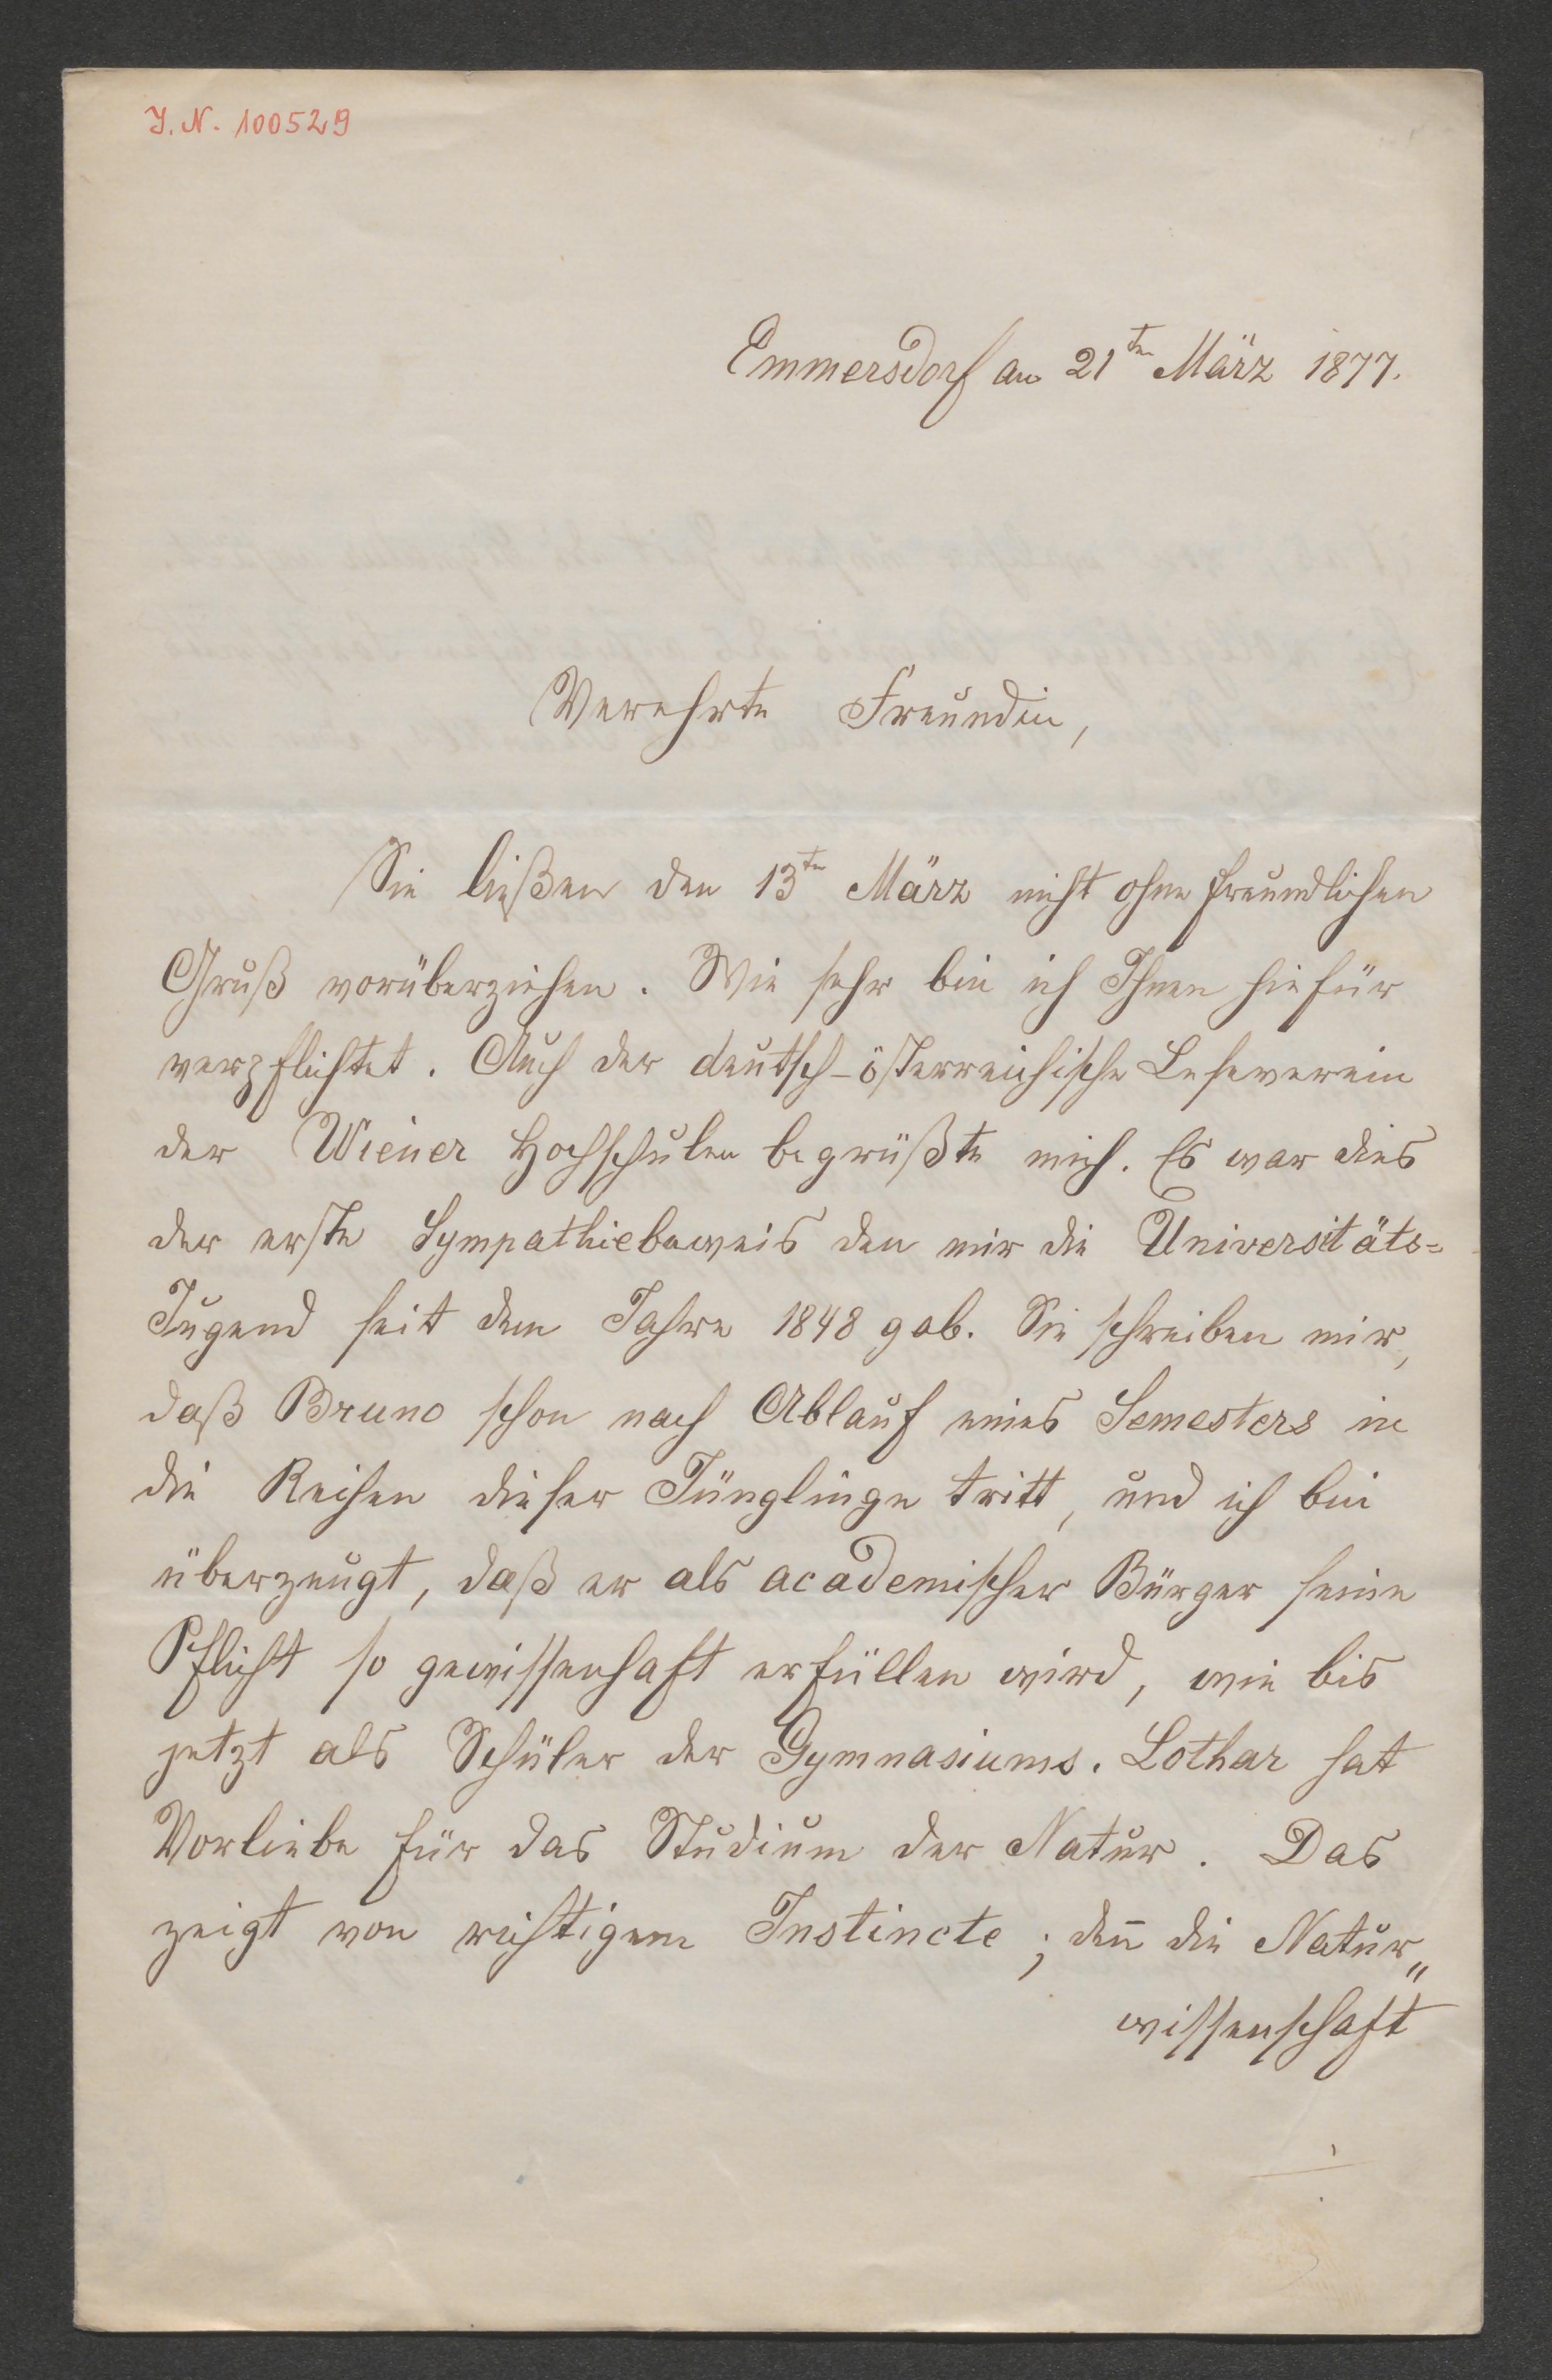 J. N. 100529
Emmersdorf am 21ten März 1877.
Verehrte Freundin,
Sie ließen den 13ten März nicht ohne freundlichen
Gruß vorüberziehen. Wie sehr bin ich Ihnen hiefür
verpflichtet. Auch der deutsch-österreichische Leseverein
der Wiener Hochschulen begrüßte mich. Es war dies
der erste Sympathiebeweis den mir die Universitäts=
Jugend seit dem Jahre 1848 gab. Sie schreiben mir,
daß Bruno schon nach Ablauf eines Semesters in
die Reihen dieser Jünglinge tritt, und ich bin
überzeugt, daß er als academischer Bürger seine
Pflicht so gewissenhaft erfüllen wird, wie bis
jetzt als Schüler der Gymnasiums. Lothar hat
Vorliebe für das Studium der Natur. Das
zeigt von richtigem Instincte; den̄ die Natur„
wissenschaft